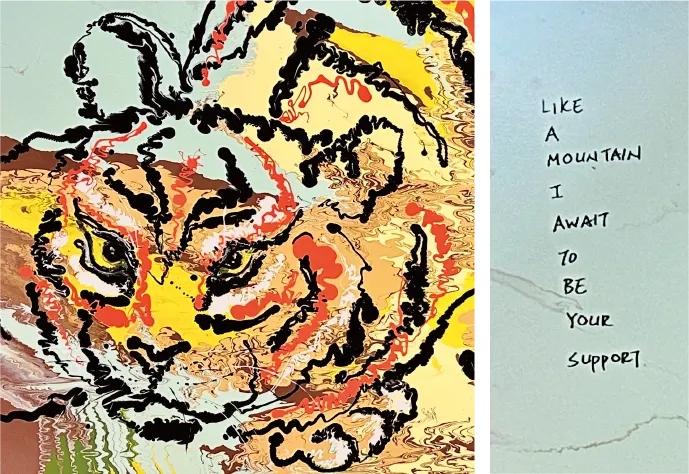 LIKE
A
MOUNTAIN
I
AWAIT
TO
BE
YOUR
SUPPORT